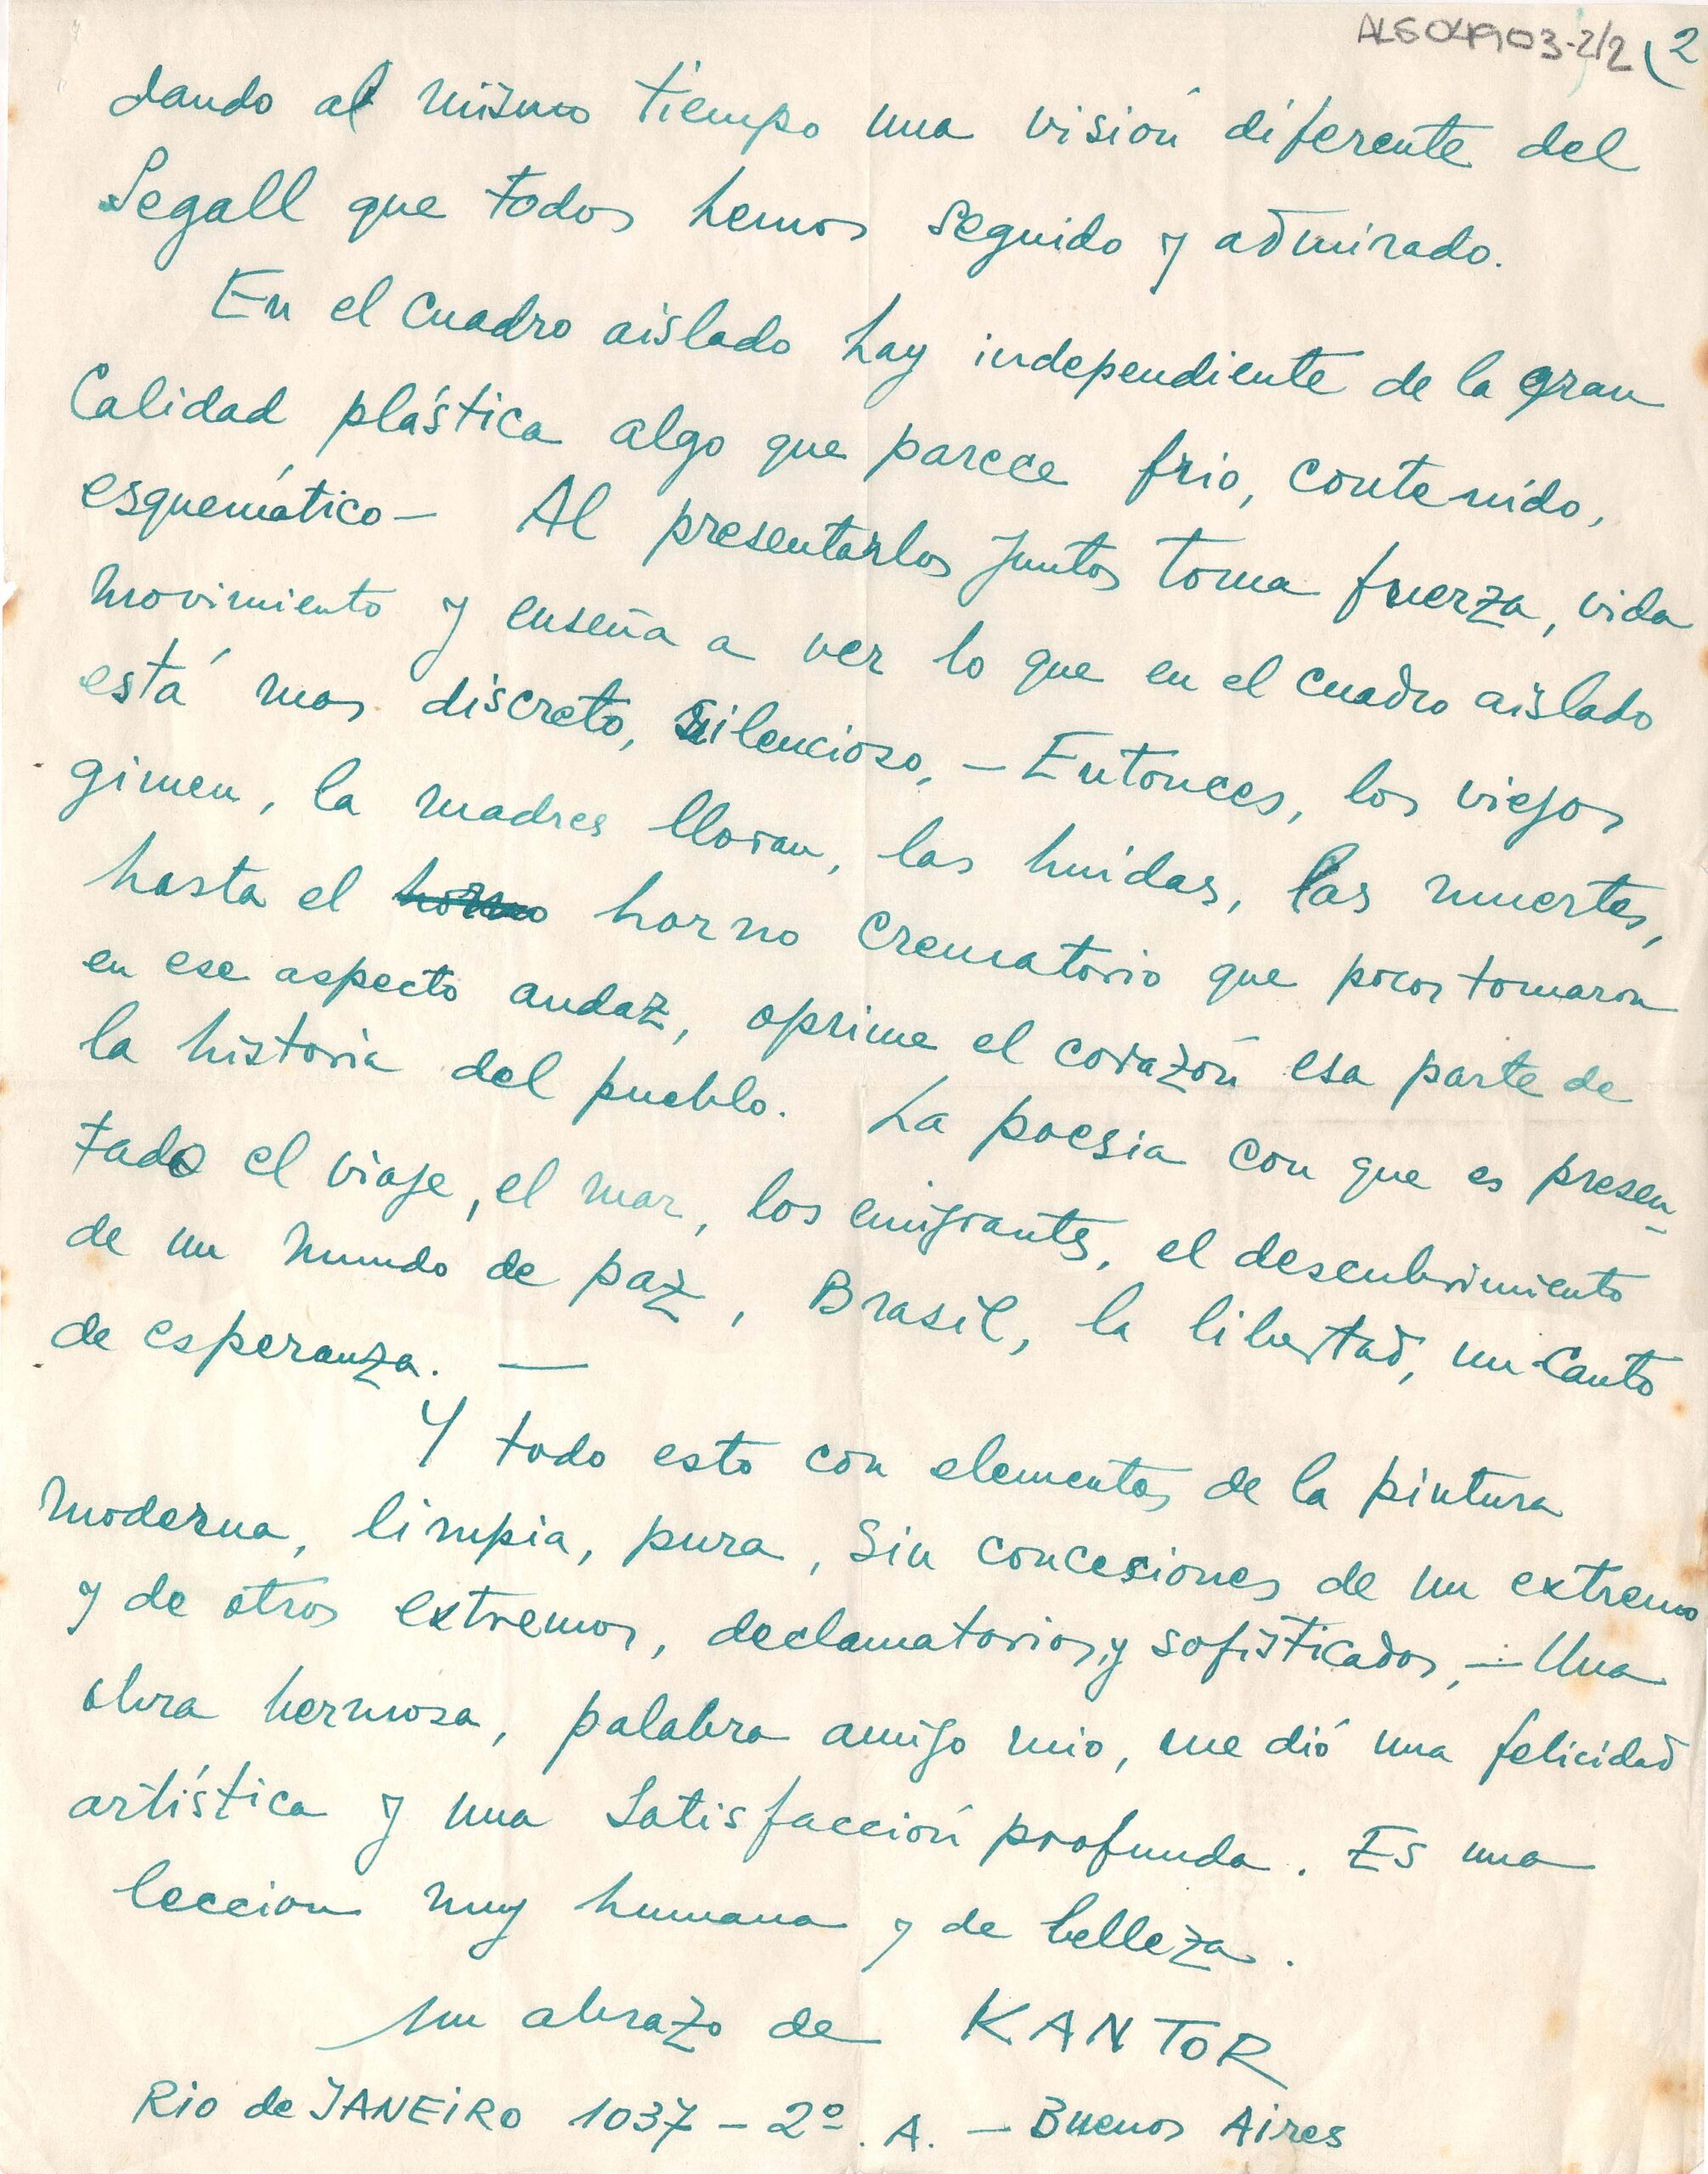 ALS04903-2/2 (2
dando al mismo tiempo una visión diferente del
Segall que todos hemos seguido y admirado.
En el cuadro aislado hay independiente de la gran
Calidad plástica algo que parece frio, contenido,
esquemático — Al presentarlos juntos toma fuerza, vida
movimiento y enseña a ver lo que en el cuadro aislado
está mas discreto, silencioso, — Entonces, los viejos
gimen, la madres lloran, las huídas, las muertes,
hasta el horno horno crematorio que pocos tomaron
en ese aspecto audaz, oprime el corazón esa parte de
la historia del pueblo. La poesia con que es presen-
tado el viaje, el mar, los emigrantes, el descubrimiento
de un mundo de paz, Brasil, la libertad, un canto
de esperanza. —
Y todo esto con elementos de la pintura
moderna, limpia, pura, sin concesiones de un extremo
y de otros extremos, declamatorios, y sofisticados, — Una
obra hermosa, palabra amigo mio, me dió una felicidad
artística y una satisfacción profunda. Es una
leccion muy humana y de belleza.
un abrazo de KANTOR
Rio de JANEiRO 1037 — 2º. A. — Buenos Aires